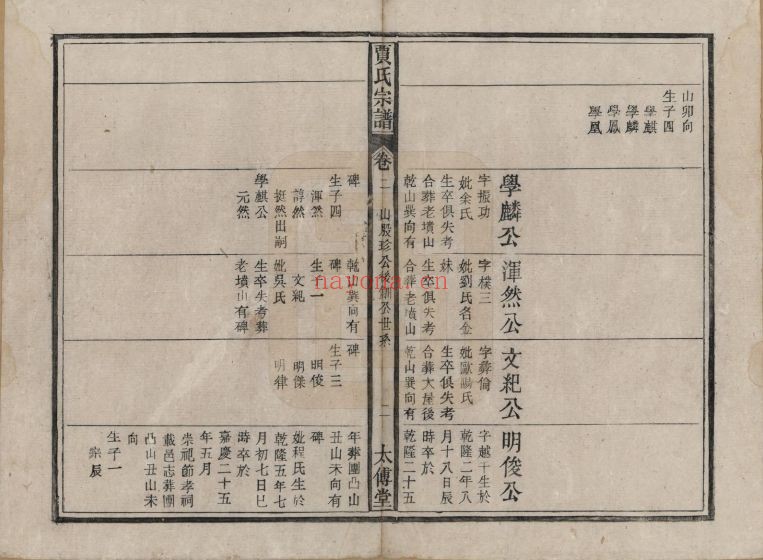 山卯向
生子四
學麒
學麟
學鳳
學凰
學麟公
字振功
妣余氏
生卒俱失考
合葬老墳山
乾山巽向有
渾然公
字樸三
妣劉氏名金
妹
生卒俱失考
合葬老墳山
文紀公
字彝倫
妣歐陽氏
生卒俱失考
合葬大屋後
乾山巽向有
明俊公
字越千生於
乾隆二年八
月十八日辰
時卒於
乾隆二十五
賈氏宗譜
卷二
山股珍公後
公世系
二
太傅堂
碑
生子四
渾然
諄然
挺然出嗣
學麒公
元然
乾山巽向有
碑
生子一
文紀
妣吳氏
生卒失考葬
老墳山有碑
碑
生子三
明俊
明傑
明律
年葬團凸山
丑山未向有
碑
妣程氏生於
乾隆五年七
月初七日巳
時卒於
嘉慶二十五
年五月
崇祝節孝祠
載邑志葬團
凸山丑山未
向
生子一
宗辰
nayona.cn